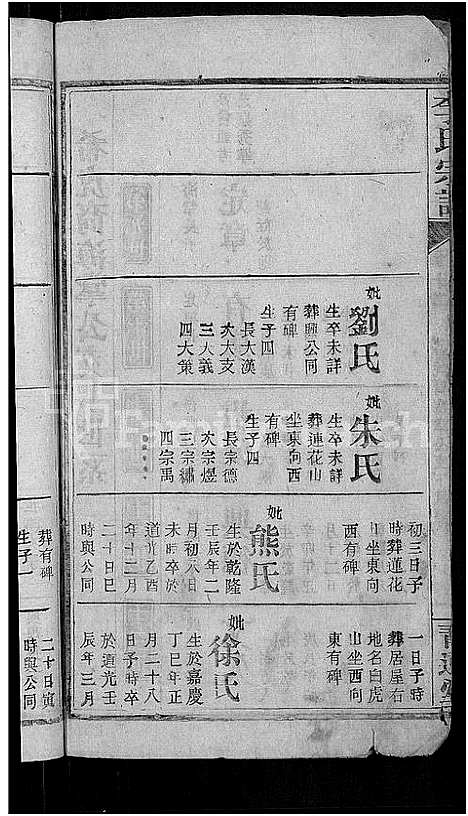 李氏宗譜
妣劉氏
生卒未詳
葬興公同
有碑
生子四
長大漢
次大支
三大義
四大策
妣朱氏
生卒未詳
葬蓮花山
坐東向西
有碑
生子四
長宗德
次宗煜
三宗繡
四宗禹
初三日子
時葬蓮花
山坐東向
西有碑
妣熊氏
生於乾隆
壬辰年二
月初六日
未時卒於
道光乙酉
年十二月
二十日巳
時與公同
一日子時
葬居屋右
地名白虎
山坐西向
東有碑
妣徐氏
生於嘉慶
丁巳年正
月二十八
日子時卒
於道光壬
辰年三月
二十日寅
時與公同
葬有碑
生子一
青蓮堂